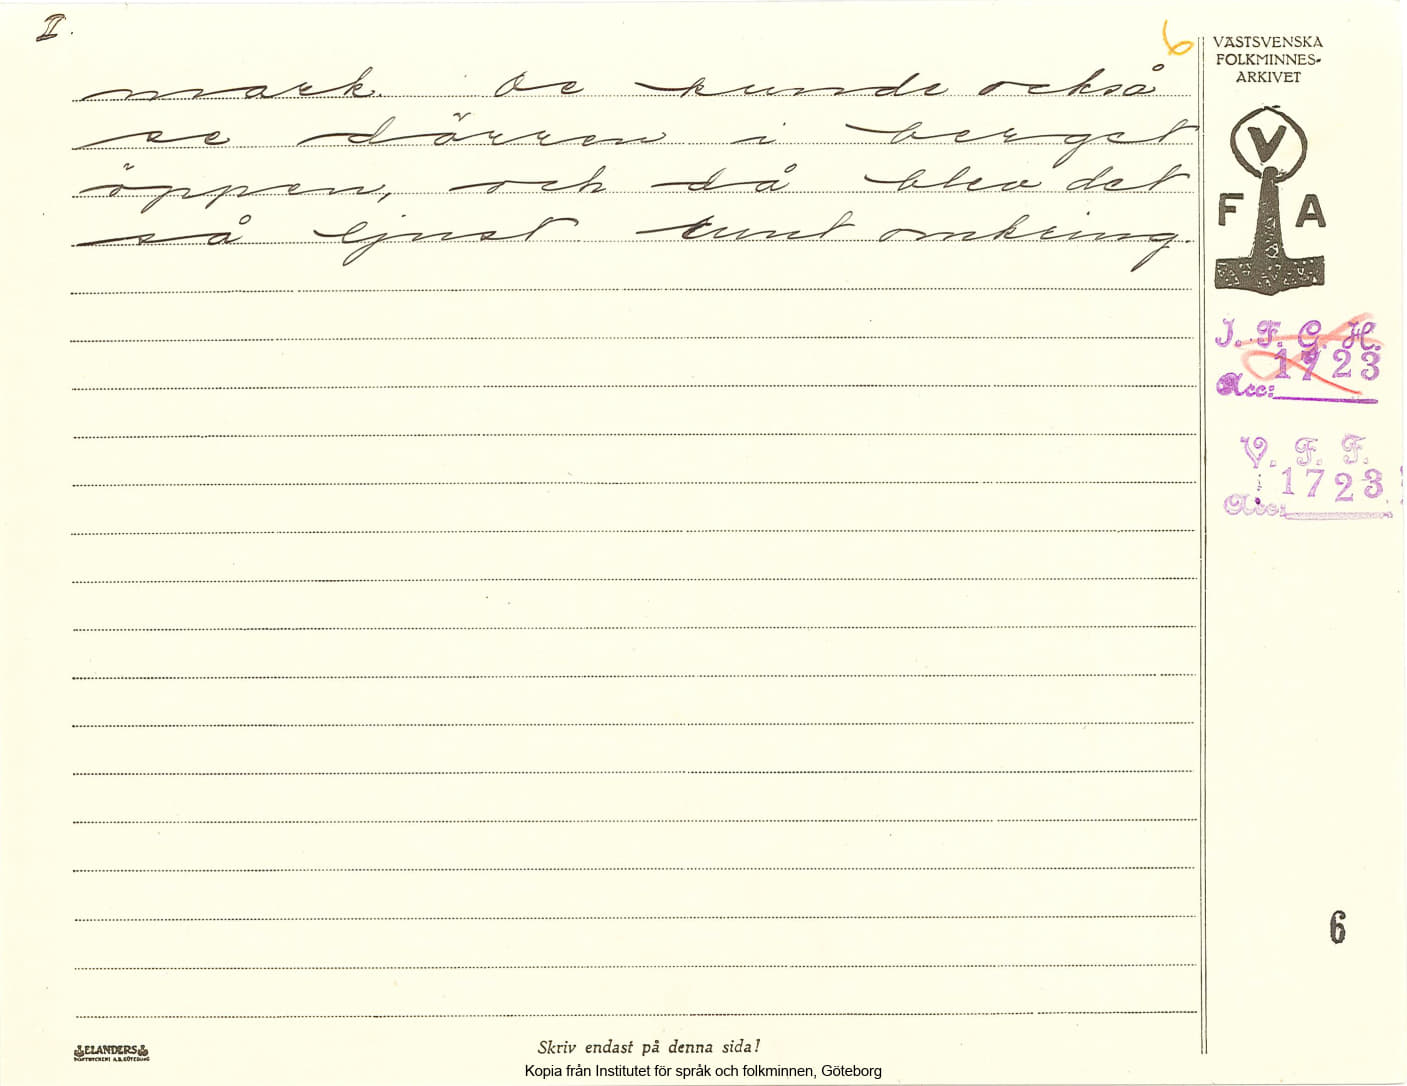 II.
6
mark. De kunde också
se dörren i berget
öppen, och då blev det
så ljust runt omkring.
VÄSTSVENSKA
FOLKMINNES-
ARKIVET
V
F A
I. F. G. H.
1723
Acc:
V. F. F.
1723
Acc:
6
ELANDERS
BOKTRYCKERI A.B. GÖTEBORG
Skriv endast på denna sida!
Kopia från Institutet för språk och folkminnen, Göteborg